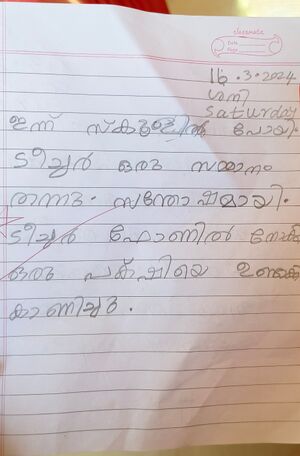 classmate
Date
Page
16.3.2024
ശനി
Saturday
ഇന്ന് സ്കൂളിൽ പോയി
ടീച്ചർ ഒരു സമ്മാനം
തന്നു. സന്തോഷമായി.
ടീച്ചർ ഫോണിൽ നോക്കി
ഒരു പക്ഷിയെ ഉണ്ടാക്കി
കാണിച്ചു.